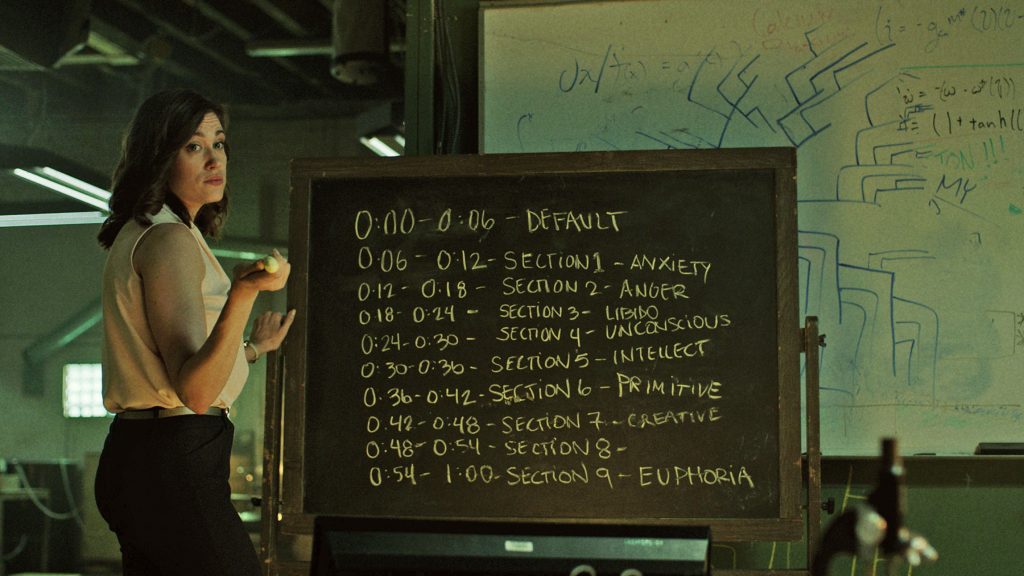 0:00 - 0:06 - DEFAULT
0:06 - 0:12 - SECTION 1 - ANXIETY
0:12 - 0:18 - SECTION 2 - ANGER
0:18 - 0:24 - SECTION 3 - LIBIDO
0:24 - 0:30 - SECTION 4 - UNCONSCIOUS
0:30 - 0:36 - SECTION 5 - INTELLECT
0:36 - 0:42 - SECTION 6 - PRIMITIVE
0:42 - 0:48 - SECTION 7 - CREATIVE
0:48 - 0:54 - SECTION 8 -
0:54 - 1:00 - SECTION 9 - EUPHORIA